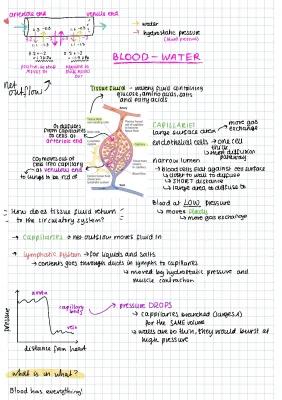 arteriole end
venule end
→ water
→ hydrostatic pressure
(blood pressure)
BLOOD - WATER
Net
outflow
Tissue fluid - watery fluid containing
glucose, amino acids, salts
and fatty acids
O₂ diffuses
from capillaries
to cells at
arteriole end
CO₂ moves out of
cells into capillary
at venule end
to lungs to be rid of
CAPILLARIES
large surface area → more gas
exchange
endothelial cells → one cell
thick
↳ short diffusion
pathway
narrow lumen
↳ blood cells flat against cell surface
↳ closer to wall to diffuse
↳ SHORT DISTANCE
↳ large area to diffuse to
blood at LOW pressure
↳ moves slowly
↳ more gas exchange
How does tissue fluid return
to the circulatory system?
→ Capillaries → net outflow moves fluid in
→ lymphatic system → for liquids and salts
↳ contents goes through ducts in lymph to capillaries
↳ moved by hydrostatic pressure and
muscle contraction
aorta
capillary
beds
vein
pressure
distance from heart
→ pressure DROPS
↳ capillaries branched (larger SA)
for the SAME volume
↳ walls are so thin, they would burst at
high pressure
what is in what?
Blood has everything!